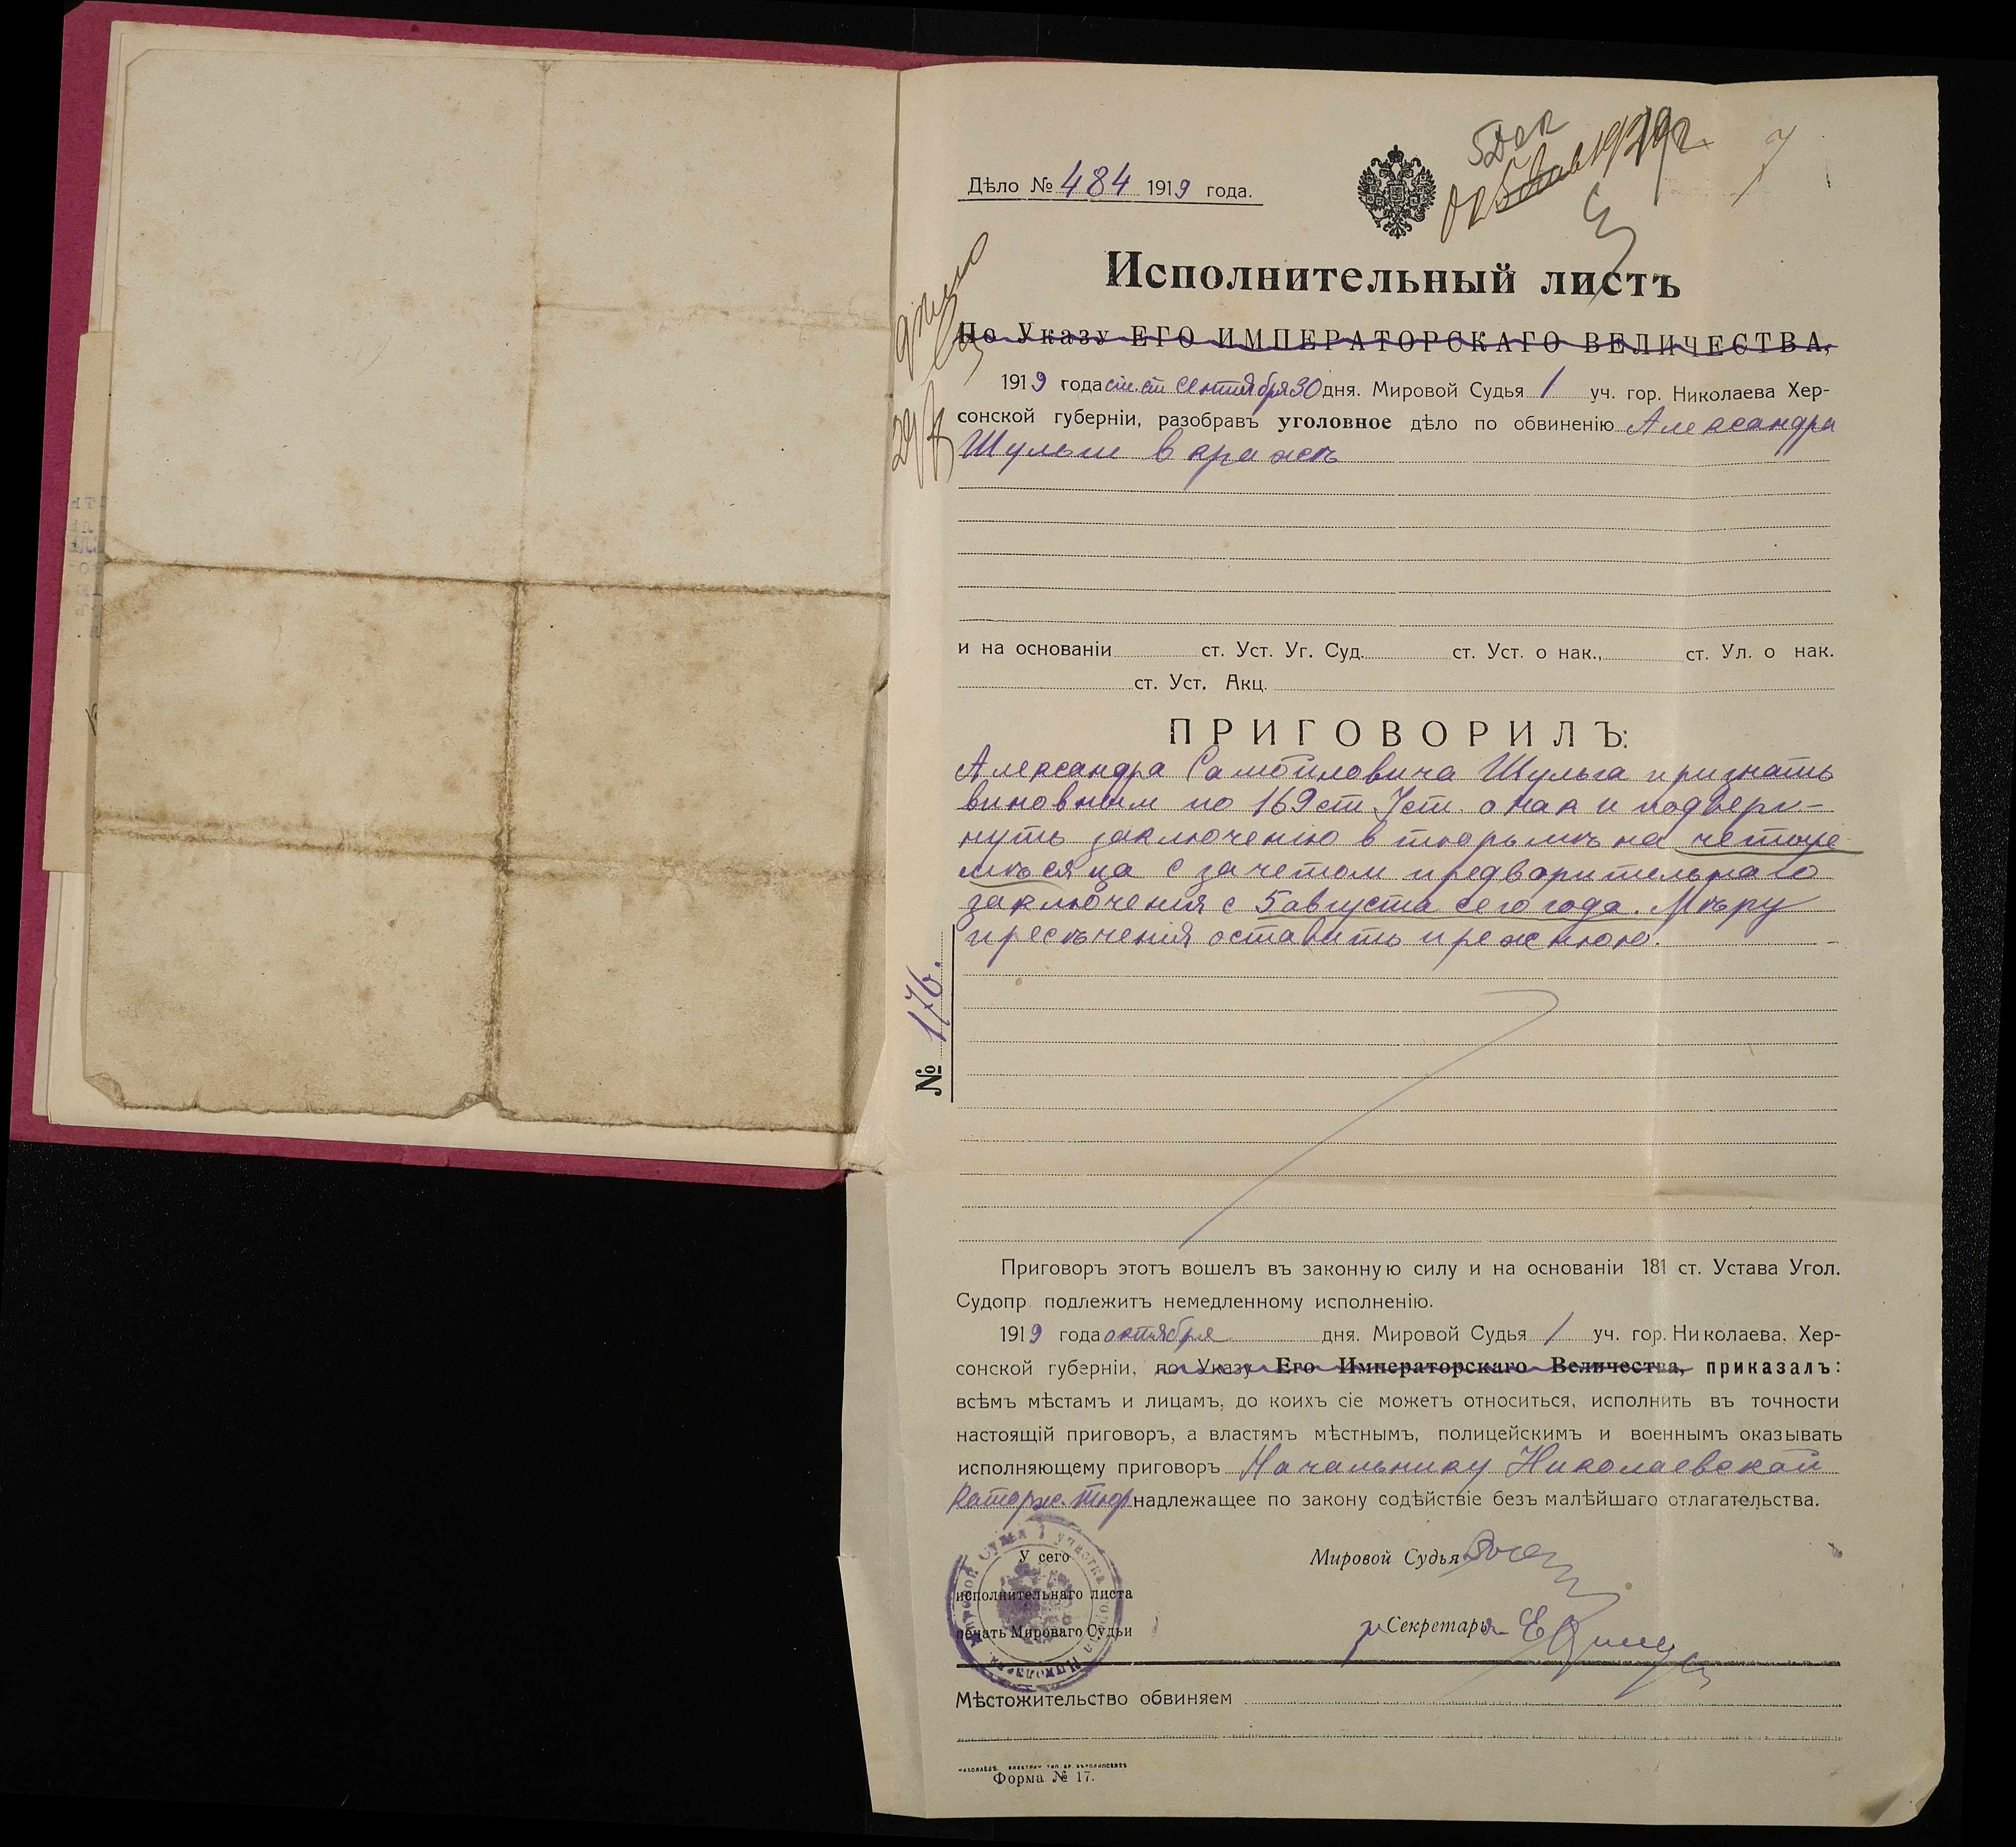 Дѣло № 484 1919 года.
5 Дек
1919 г.
7
Исполнительный листъ
По Указу ЕГО ИМПЕРАТОРСКАГО ВЕЛИЧЕСТВА,
1919 года ст. ст. Сентября 30 дня. Мировой Судья 1 уч. гор. Николаева Хер-
сонской губерніи, разобравъ уголовное дѣло по обвиненію Александра
Шульги в кражѣ
и на основаніи ст. Уст. Уг. Суд. ст. Уст. о нак., ст. Ул. о нак.
ст. Уст. Акц.
ПРИГОВОРИЛЪ:
Александра Самойловича Шульга признать
виновным по 169 ст. Уст. о нак и подверг-
нуть заключению в тюрьмѣ на четыре
мѣсяца с зачетом предварительнаго
заключения с 5 августа сего года. Мѣру
пресѣчения оставить прежнюю.
№ 176.
Приговоръ этотъ вошелъ въ законную силу и на основаніи 181 ст. Устава Угол.
Судопр подлежитъ немедленному исполненію.
1919 года октября дня. Мировой Судья 1 уч. гор. Николаева, Хер-
сонской губерніи, по Указу Его Императорскаго Величества, приказалъ:
всѣмъ мѣстамъ и лицамъ, до коихъ сіе можетъ относиться, исполнить въ точности
настоящій приговоръ, а властямъ мѣстнымъ, полицейскимъ и военнымъ оказывать
исполняющему приговоръ Начальнику Николаевской
каторж. тюр. надлежащее по закону содѣйствіе безъ малѣйшаго отлагательства.
У сего
исполнительнаго листа
печать Мироваго Судьи
Мировой Судья
Секретарь
Мѣстожительство обвиняем
Форма № 17.